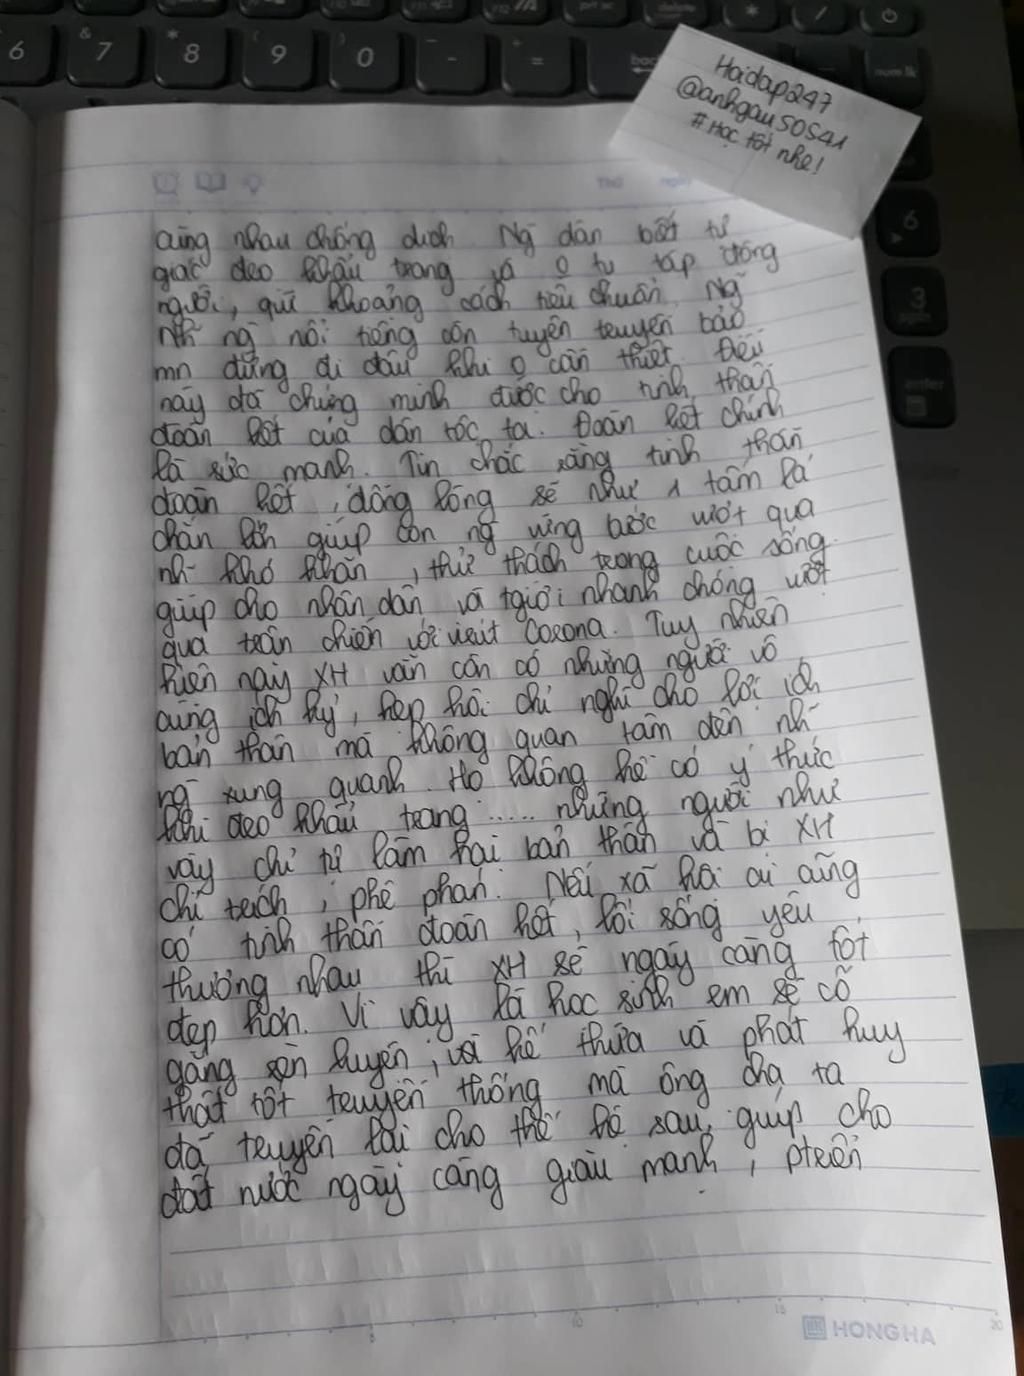 6 & 7 * 8 ( 9 ) 0 - =
delete * /
num lk
6
3
pgdn
enter
Hoidap247
@anhgau50541
# Học tốt nhe!
Thứ ngày
cũng nhau chống dịch Ng dân bất tự
giác đeo khẩu trang và 0 tụ tập đông
người, giữ khoảng cách tiêu chuẩn. Ng
Nh~ ng nổi tiếng còn tuyên truyền bảo
mn đừng đi đâu khi 0 cần thiết. Điều
này đã chứng minh được cho tinh thần
đoàn kết của dân tộc ta. Đoàn kết chính
là sức mạnh. Tin chắc rằng tinh thần
đoàn kết, đồng lòng sẽ như 1 tấm lá
chắn lớn giúp con ng vững bước vượt qua
nh~ khó khăn, thử thách trong cuộc sống
giúp cho nhân dân và tgiới nhanh chóng vượt
qua trận chiến với virút Corona. Tuy nhiên
hiện nay XH vẫn còn có những người vô
cùng ích kỷ, hẹp hòi chỉ nghĩ cho lợi ích
bản thân mà không quan tâm đến nh~
ng xung quanh. Họ không hề có ý thức
khi đeo khẩu trang ..... những người như
vậy chỉ tự làm hại bản thân và bị XH
chỉ trích, phê phán. Nếu xã hội ai cũng
có tinh thần đoàn kết, lối sống yêu
thương nhau thì XH sẽ ngày càng tốt
đẹp hơn. Vì vậy là học sinh em sẽ cố
gắng rèn luyện, và kế thừa và phát huy
thật tốt truyền thống mà ông cha ta
đã truyền lại cho thế hệ sau, giúp cho
đất nước ngày càng giàu mạnh, ptriển
5 10 15 20
HONG HA